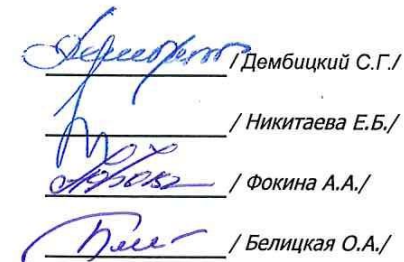 /Дембицкий С.Г./
/ Никитаева Е.Б./
/ Фокина А.А./
/ Белицкая О.А./